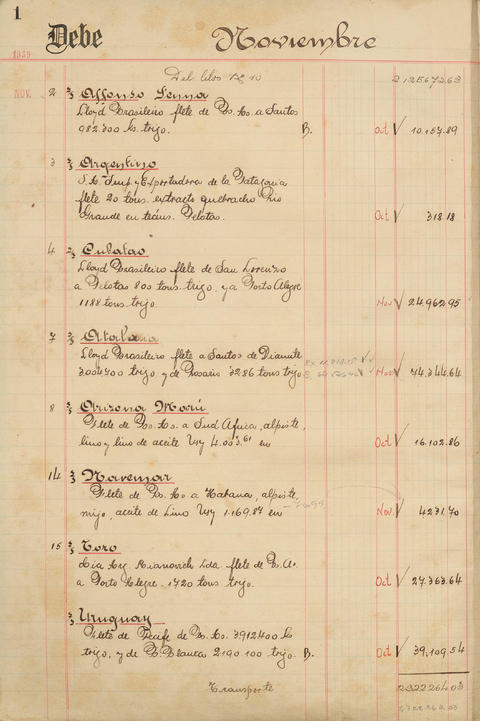 1
Debe Noviembre
1939
Del Libro Nº 10 2.125.672.63
NOV. 2 Affonso Penna
Lloyd Brasileiro flete de Bs. As. a Santos
982.300 ks trigo. B. Oct 10.157.89
3 Argentino
S.A. Imp. y Exportadora de la Patagonia
flete 20 tons. extracto quebracho Rio
Grande en tráns. Pelotas. Oct 318.18
4 Cubatao
Lloyd Brasileiro flete de San Lorenzo
a Pelotas 800 tons. trigo, y a Porto Alegre
1188 tons. trigo. Nov 24.962.95
7 Atalaia
Lloyd Brasileiro flete a Santos de Diamte
3004700 trigo y de Rosario 3286 tons trigo Nov 74.344.64
8 Arizona Marú
Flete de Bs. As. a Sud Africa, alpiste,
lino y lino de aceite 4.003.61 en Oct 16.102.86
14 Navemar
Flete de Bs. As a Habana, alpiste,
mijo, aceite de Lino 1.169.87 en Nov. 4231.70
15 Toro
Cia Arg. Mianovich Lda flete de B. A.
a Porto Alegre. 1720 tons trigo. Oct 27.363.64
Uruguay
Flete de Recife de Bs. As. 3912400 ks
trigo, y de B. Blanca 2190 100 trigo. B. Oct 39,109.54
Transporte 2322264.03
2322264.03